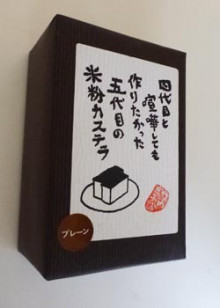 四代目と
喧嘩しても
作りたかった
五代目の
米粉カステラ
プレーン